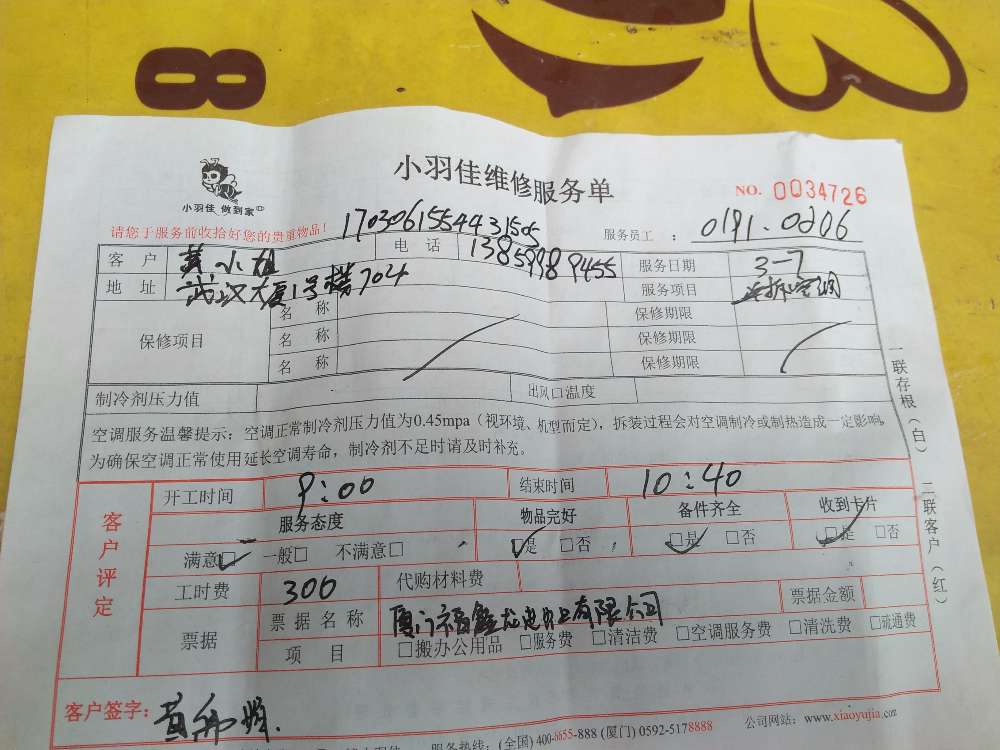 8
小羽佳 做到家
小羽佳维修服务单
NO. 0034726
请您于服务前收拾好您的贵重物品!
17030615544431505
服务员工 : 0191.0206
客户 黄小姐 电话 13859989455 服务日期 3-7
地址 武汉大厦1号楼704 服务项目 拆空调
保修项目 名称 保修期限
名称 保修期限
名称 保修期限
制冷剂压力值 出风口温度
空调服务温馨提示:空调正常制冷剂压力值为0.45mpa(视环境、机型而定),拆装过程会对空调制冷或制热造成一定影响,
为确保空调正常使用延长空调寿命,制冷剂不足时请及时补充。
一联存根(白) 二联客户(红)
客户评定
开工时间 9:00 结束时间 10:40
服务态度 物品完好 备件齐全 收到卡片
满意□ 一般□ 不满意□ □是 □否 □是 □否 □是 □否
工时费 300 代购材料费
票据 票据名称 有限公司 票据金额
项目 □搬办公用品 □服务费 □清洁费 □空调服务费 □清洗费 □疏通费
客户签字: 黄
公司网站: www.xiaoyujia.com
服务热线: (全国) 400-6655-888 (厦门) 0592-5178888